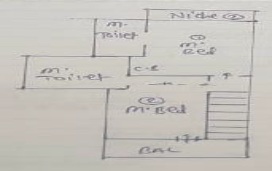 Niche ②
M.
Toilet
①
M.
Bed
M.
Toilet
C.B
②
M.Bed
BAL